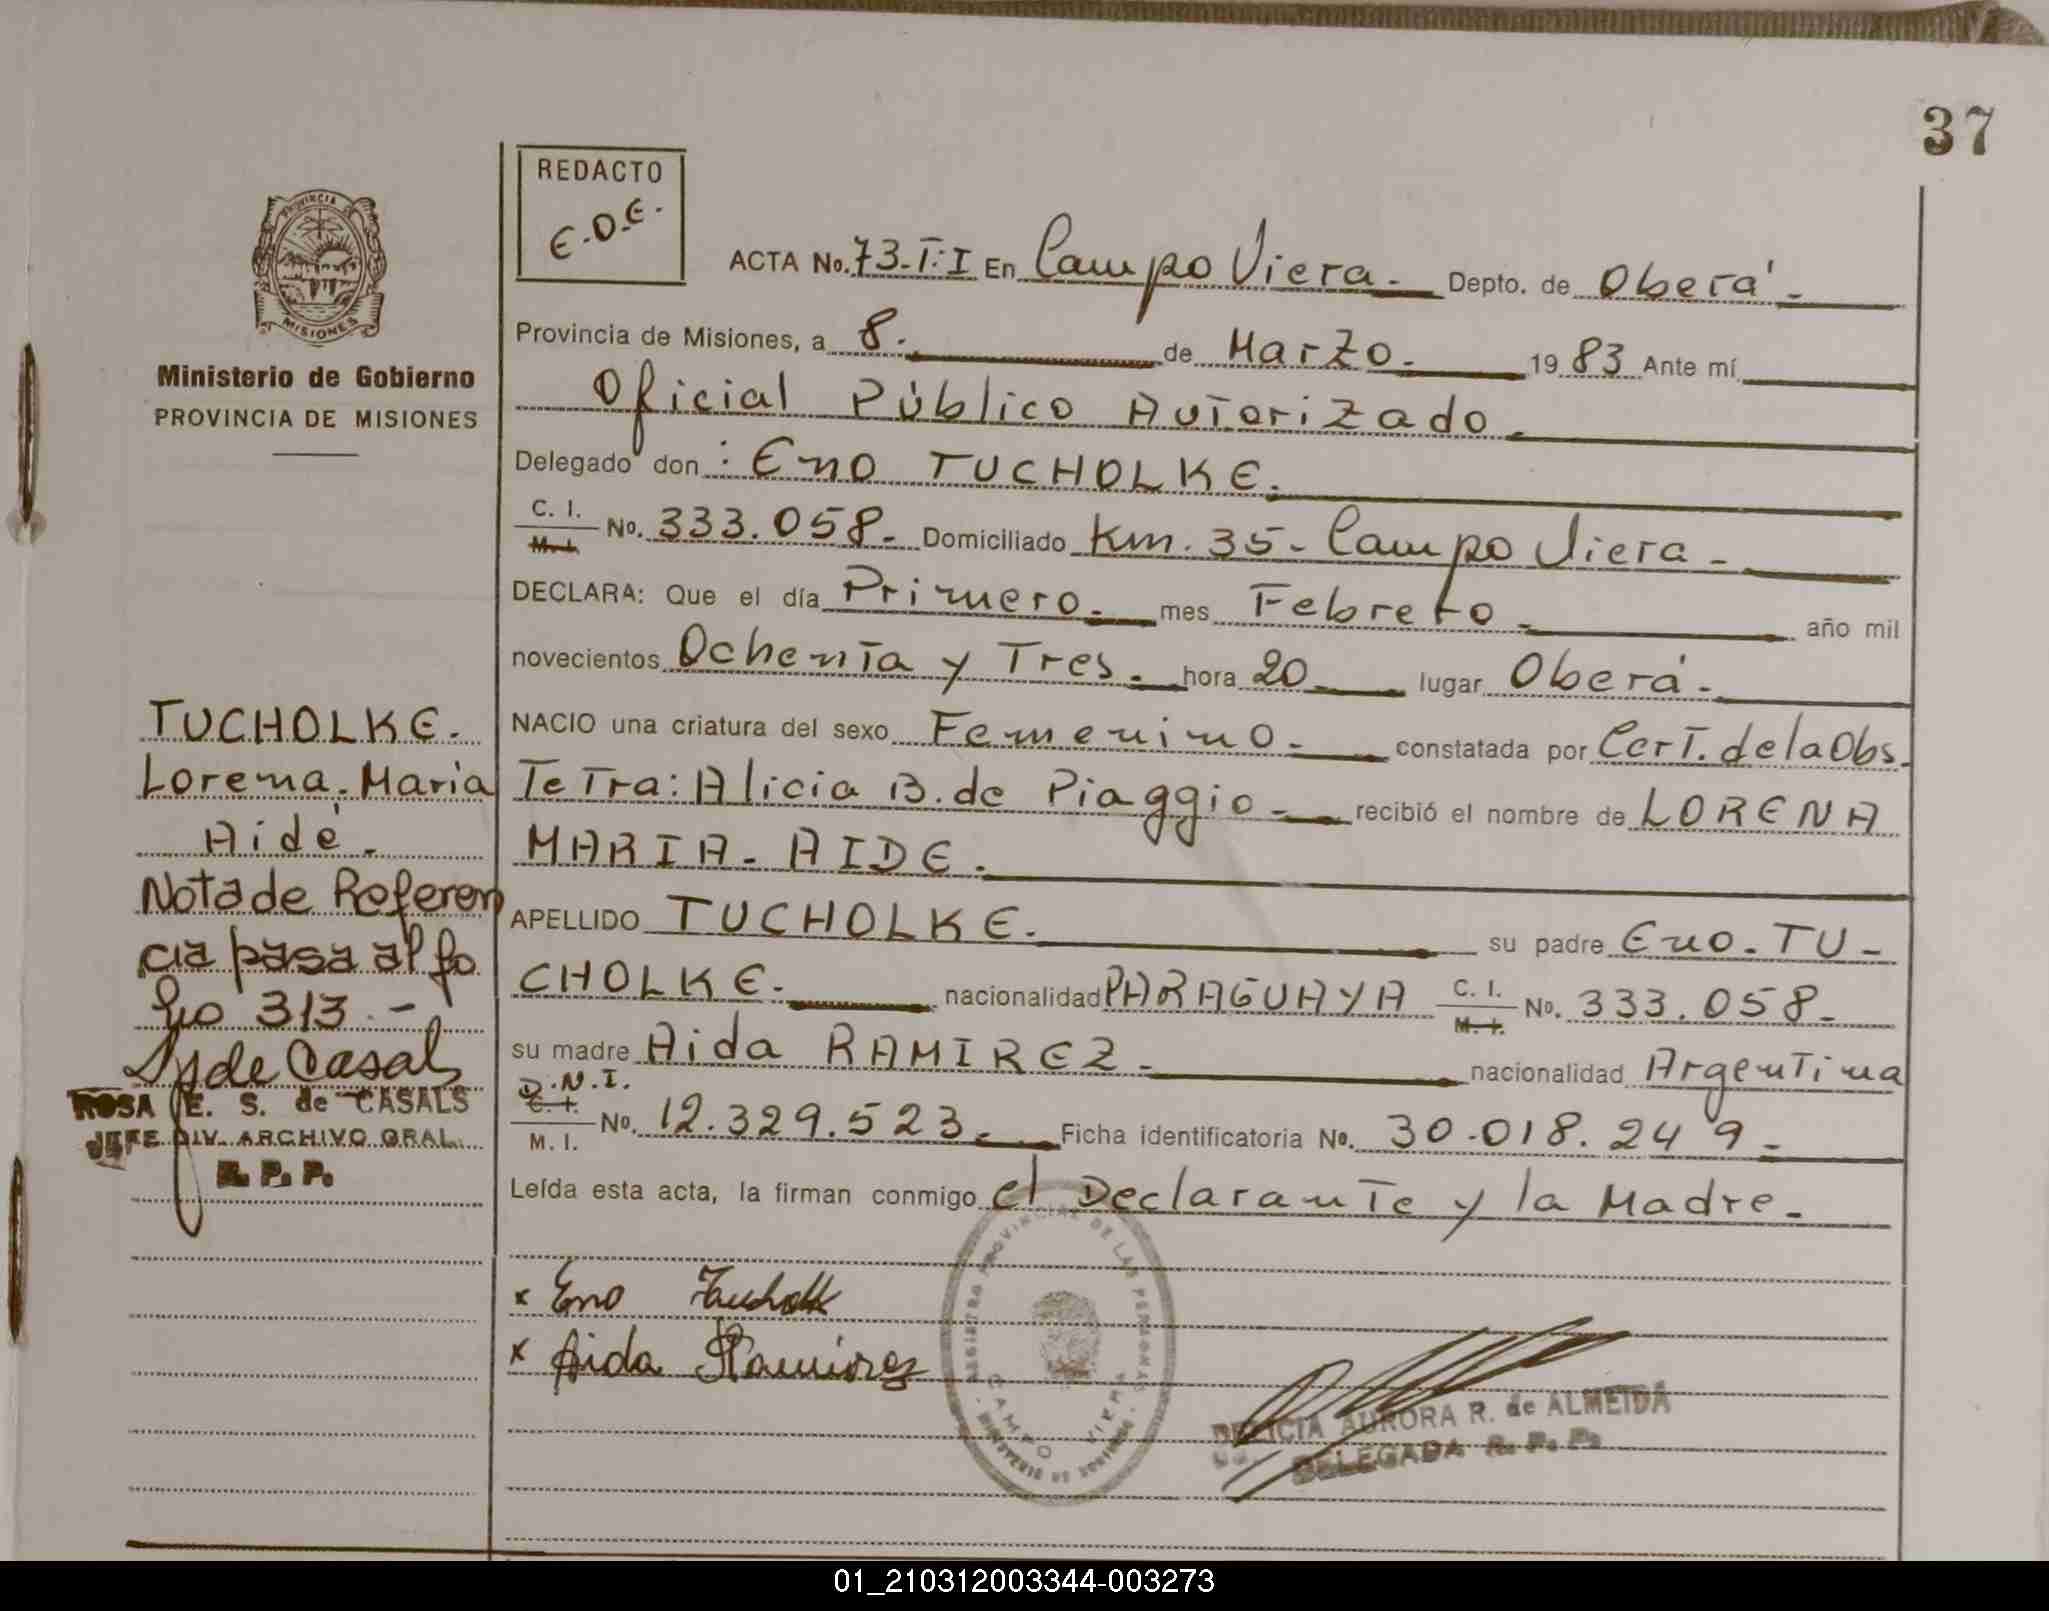 37
REDACTO
E.D.E.
PROVINCIA DE
MISIONES
Ministerio de Gobierno
PROVINCIA DE MISIONES
ACTA No. 73-T:I En Campo Viera. Depto. de Oberá.
Provincia de Misiones, a 8. de Marzo. 1983 Ante mí
Oficial Público Autorizado.
Delegado don: Eno TUCHOLKE.
C. I.
M. I. No. 333.058. Domiciliado Km. 35- Campo Viera.
DECLARA: Que el día Primero. mes Febrero. año mil
novecientos Ochenta y Tres. hora 20 lugar Oberá.
NACIO una criatura del sexo Femenino. constatada por Cert. de la Obs.
Tetra: Alicia B. de Piaggio. recibió el nombre de LORENA
MARIA- AIDE.
APELLIDO TUCHOLKE. su padre Eno. TU-
CHOLKE. nacionalidad PARAGUAYA C. I.
M. I. No. 333.058.
su madre Aida RAMIREZ. nacionalidad Argentina
D.N.I.
C. I.
M. I. No. 12.329.523. Ficha identificatoria No. 30.018.249.
Leída esta acta, la firman conmigo el Declarante y la Madre.
TUCHOLKE.
Lorena. Maria
Aidé.
Nota de Referen
cia pasa al fo
lio 313.-
de Casals
ROSA E. S. de CASALS
JEFE DIV. ARCHIVO GRAL.
R. P. P.
x Eno Tucholk
x Aida Ramirez
REGISTRO PROVINCIAL DE LAS PERSONAS
CAMPO VIERA
MINISTERIO DE GOBIERNO
DELICIA AURORA R. de ALMEIDA
DELEGADA R. P. P.
01_210312003344-003273